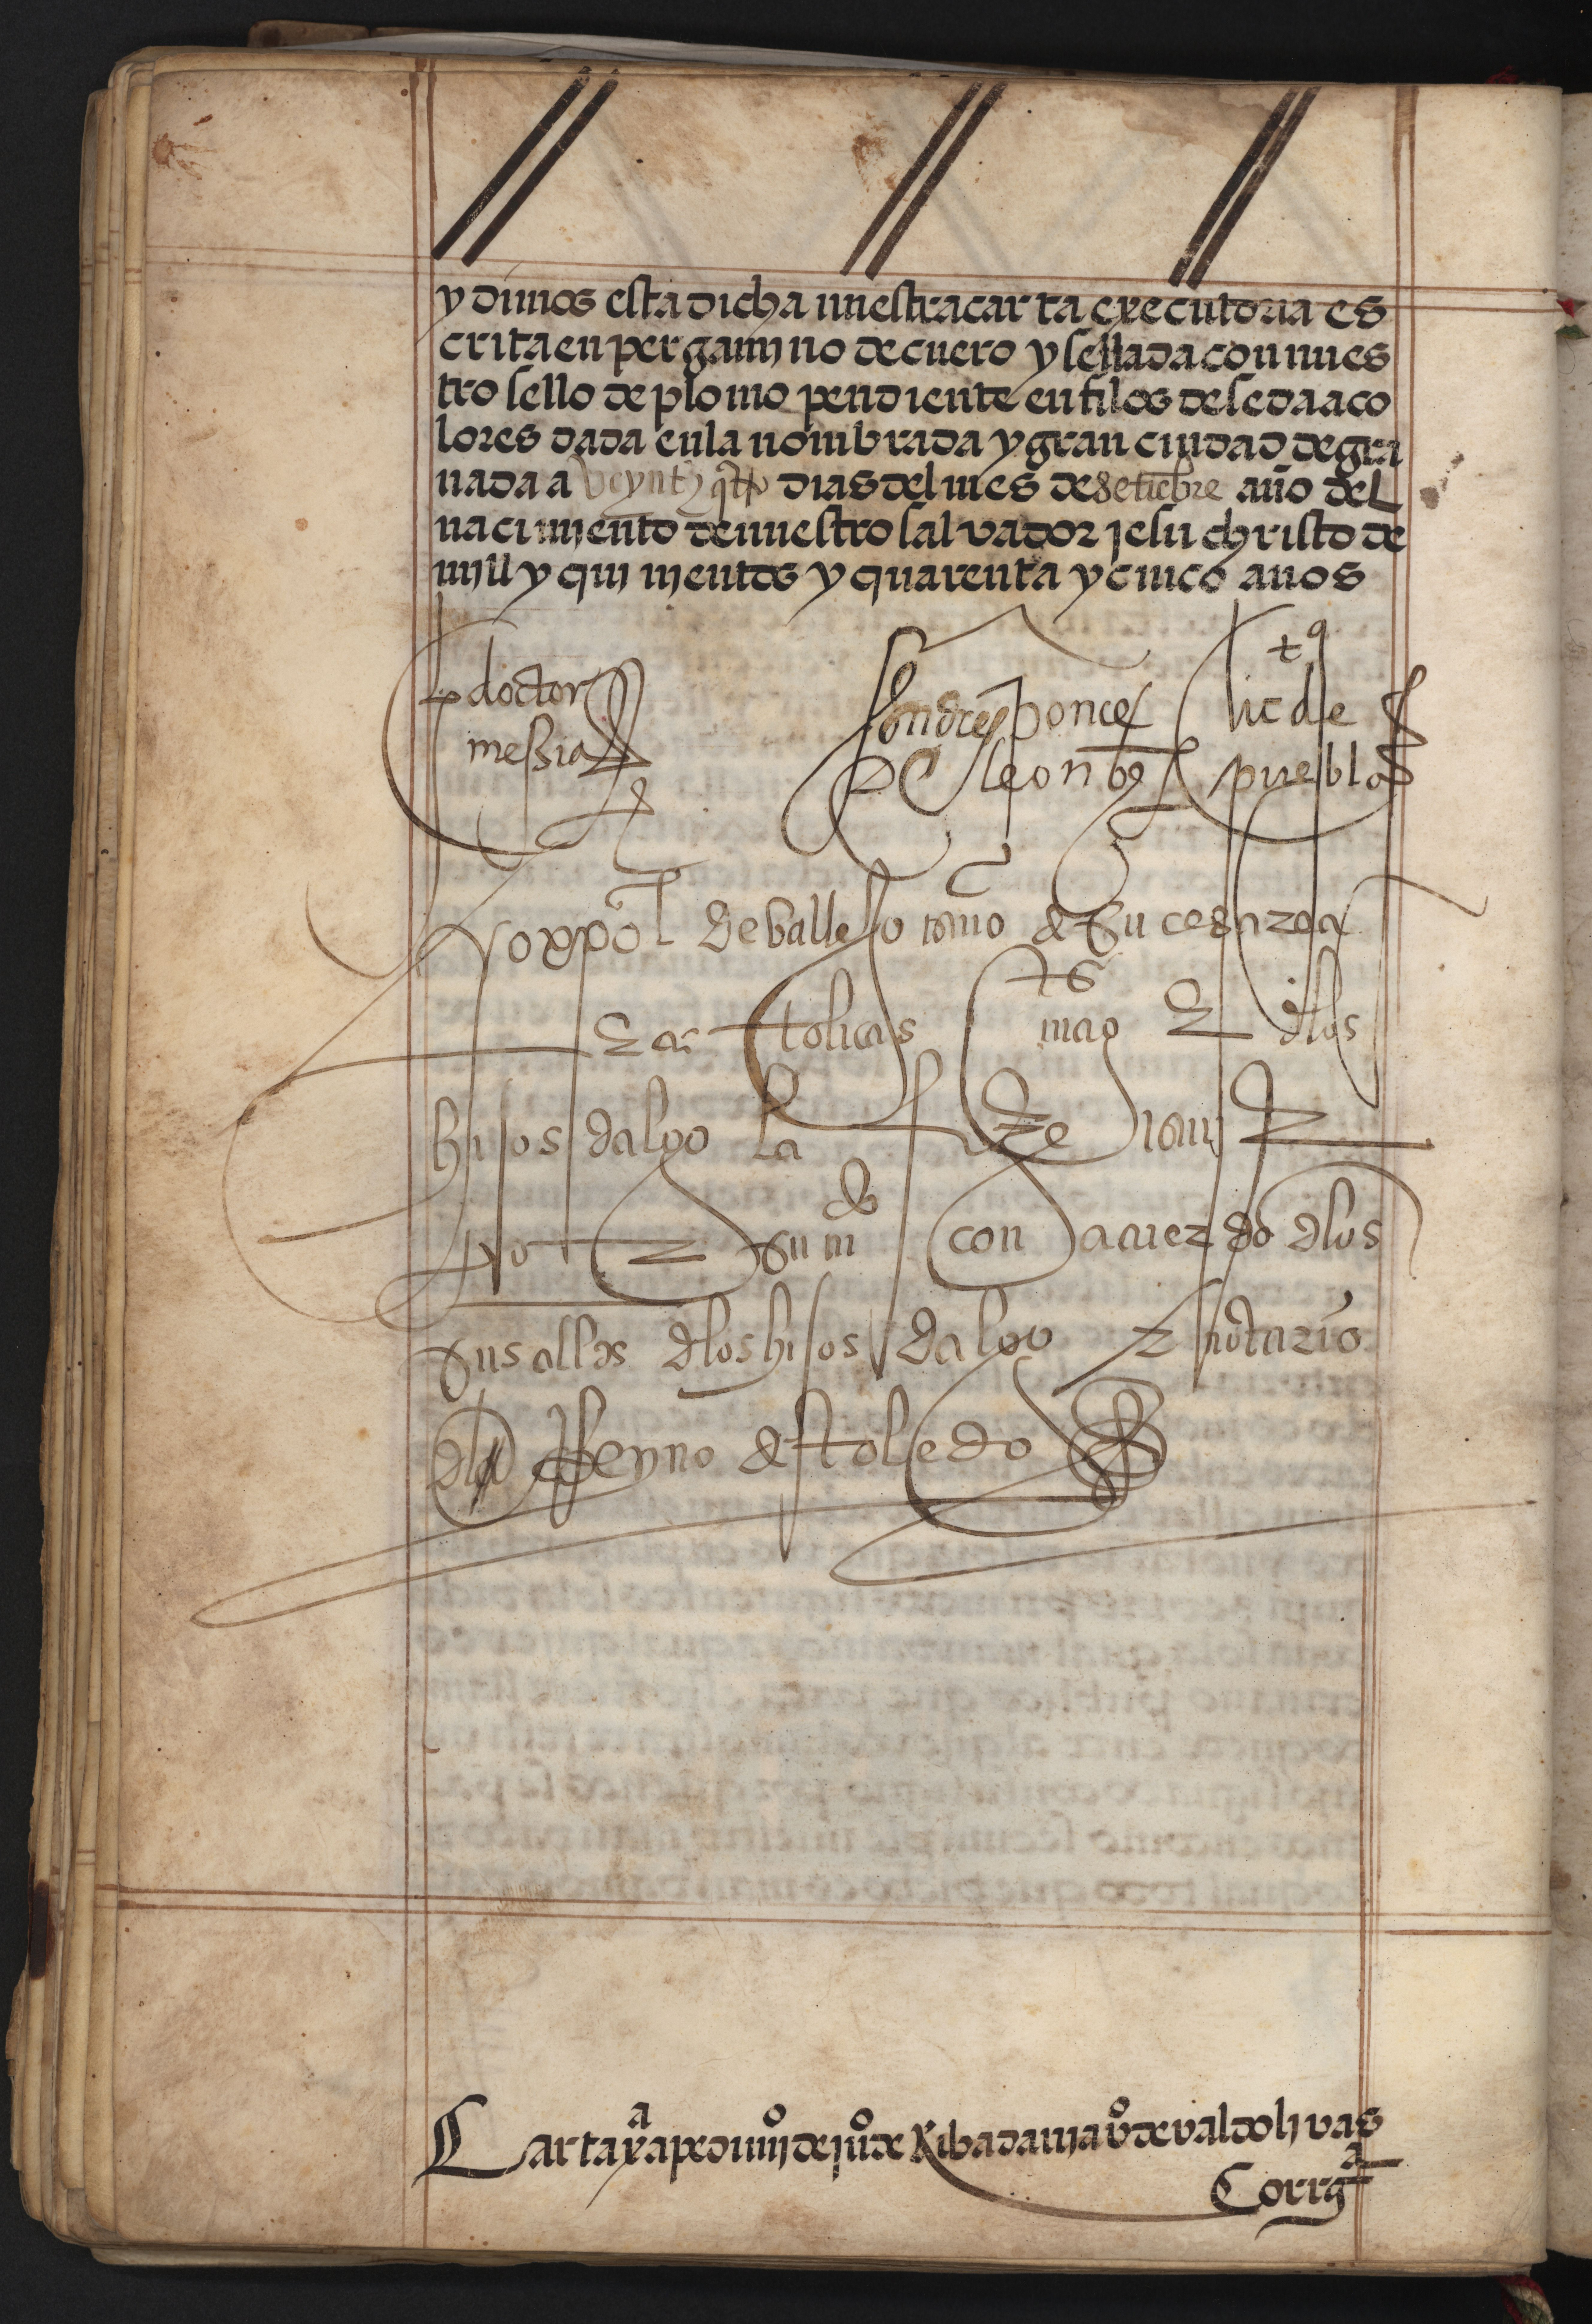 y dimos esta dicha nuestra carta executoria es
crita en pergamino de cuero y sellada con nues
tro sello de plomo pendiente en filos de seda a co
lores dada en la nombrada y gran ciudad de gra
nada a veynte y qtro dias del mes de setiebre año del
nacimiento de nuestro salvador jesu christo de
mjll y quinjentos y quarenta y cinco años
doctor
messia
Andres ponce
de leon
lic de
puebla
yo xpoval de vallejo de su cesarea
catolicas mag dlos
hijos dalgo la
con acuerdo dlos
sus alldes dlos hijos dalgo notario
dl Reyno de toledo
Carta xa a pedimj de juo de Ribadania vo de valdolivas
Corrga